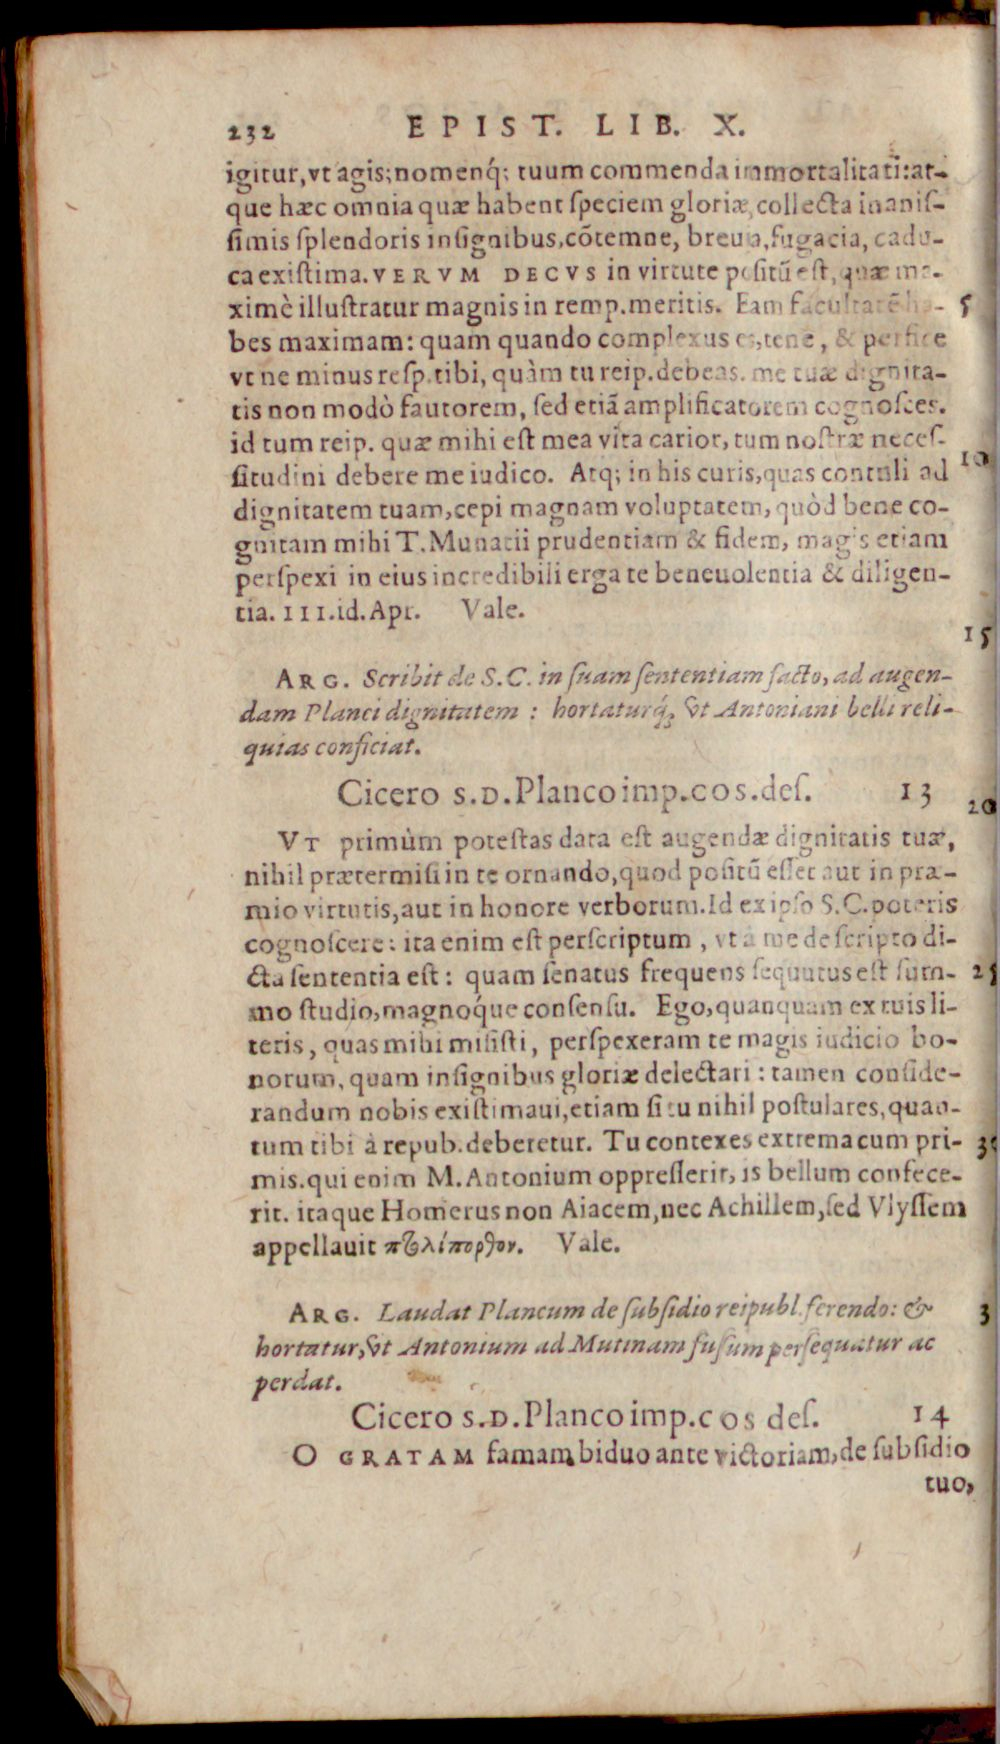 232 EPIST. LIB. X.
igitur, vt agis; nomenq́; tuum commenda immortalitati: at-
que hæc omnia quæ habent ſpeciem gloriæ, collecta inaniſ-
ſimis ſplendoris inſignibus, cõtemne, breuia, fugacia, cadu-
ca exiſtima. VERVM DECVS in virtute poſitũ eſt, quæ ma-
ximè illuſtratur magnis in remp. meritis. Eam facultatẽ ha- 5
bes maximam: quam quando complexus es, tene, & perfice
vt ne minus reſp. tibi, quàm tu reip. debeas. me tuæ dignita-
tis non modò fautorem, ſed etiã amplificatorem cognoſces.
id tum reip. quæ mihi eſt mea vita carior, tum noſtræ neceſ-
ſitudini debere me iudico. Atq; in his curis, quas contuli ad 10
dignitatem tuam, cepi magnam voluptatem, quòd bene co-
gnitam mihi T. Munatii prudentiam & fidem, magis etiam
perſpexi in eius incredibili erga te beneuolentia & diligen-
tia. III. id. Apr. Vale.
15
ARG. Scribit de S. C. in ſuam ſententiam facto, ad augen-
dam Planci dignitatem : hortaturq́; vt Antoniani belli reli-
quias conficiat.
Cicero S. D. Planco imp. cos. deſ. 13
20
VT primùm poteſtas data eſt augendæ dignitatis tuæ,
nihil prætermiſi in te ornando, quod poſitũ eſſet aut in præ-
mio virtutis, aut in honore verborum. Id ex ipſo S. C. poteris
cognoſcere: ita enim eſt perſcriptum , vt à me de ſcripto di-
cta ſententia eſt: quam ſenatus frequens ſequutus eſt ſum- 25
mo ſtudio, magnoq́ue conſenſu. Ego, quanquam ex tuis li-
teris, quas mihi miſiſti, perſpexeram te magis iudicio bo-
norum, quam inſignibus gloriæ delectari : tamen conſide-
randum nobis exiſtimaui, etiam ſi tu nihil poſtulares, quan-
tum tibi à repub. deberetur. Tu contexes extrema cum pri- 30
mis. qui enim M. Antonium oppreſſerit, is bellum confece-
rit. itaque Homerus non Aiacem, nec Achillem, ſed Vlyſſem
appellauit πτολίπορθον. Vale.
ARG. Laudat Plancum de ſubſidio reipubl. ferendo: & 3
hortatur, vt Antonium ad Mutinam fuſum perſequatur ac
perdat.
Cicero S. D. Planco imp. cos deſ. 14
O GRATAM famam biduo ante victoriam, de ſubſidio
tuo,